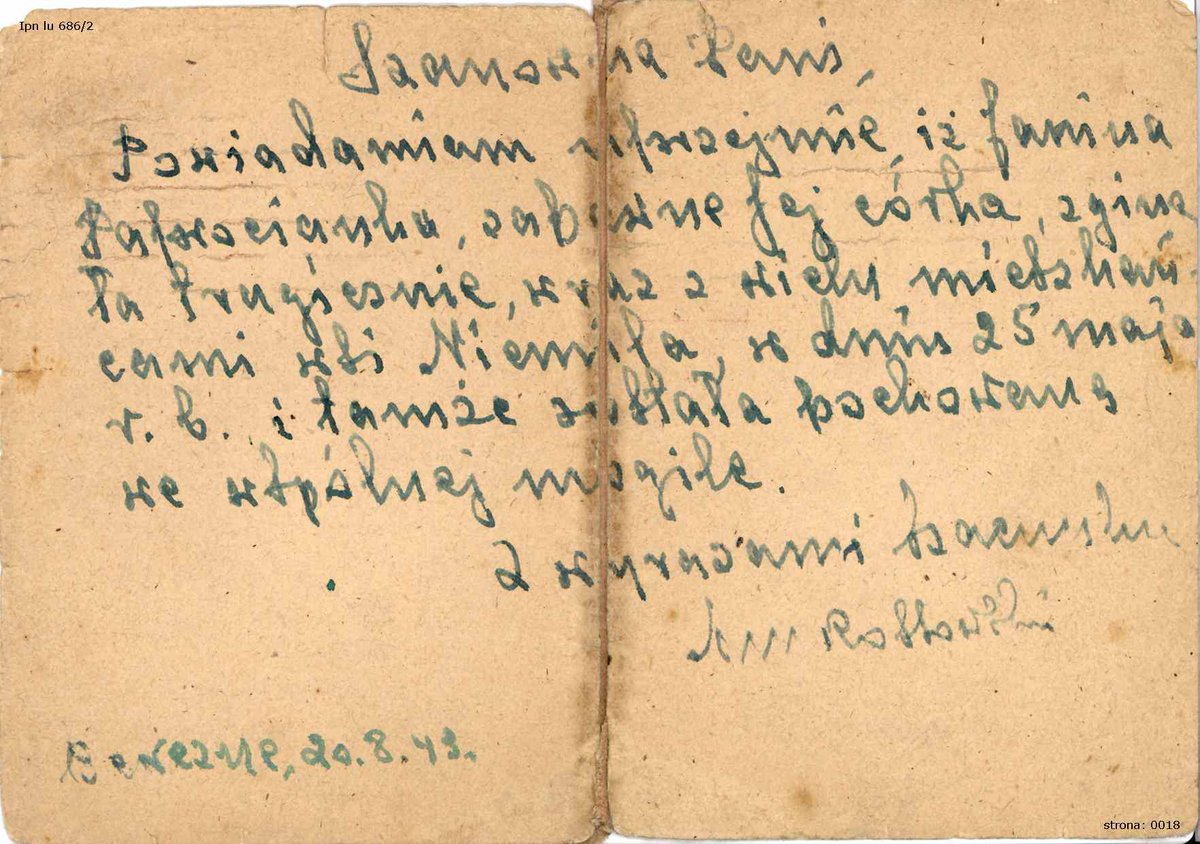 Ipn lu 686/2
Szanowna Pani,
Powiadamiam uprzejmie, iż Janina
zapewne Jej córka, zginę
ła tragicznie, wraz z wielu mieszkań
cami wsi Niemila, w dniu 25 maja
r. b. i tamże została pochowaną
we wspólnej mogile.
Z wyrazami szacunku
Bereżne, 20.8.43.
strona: 0018